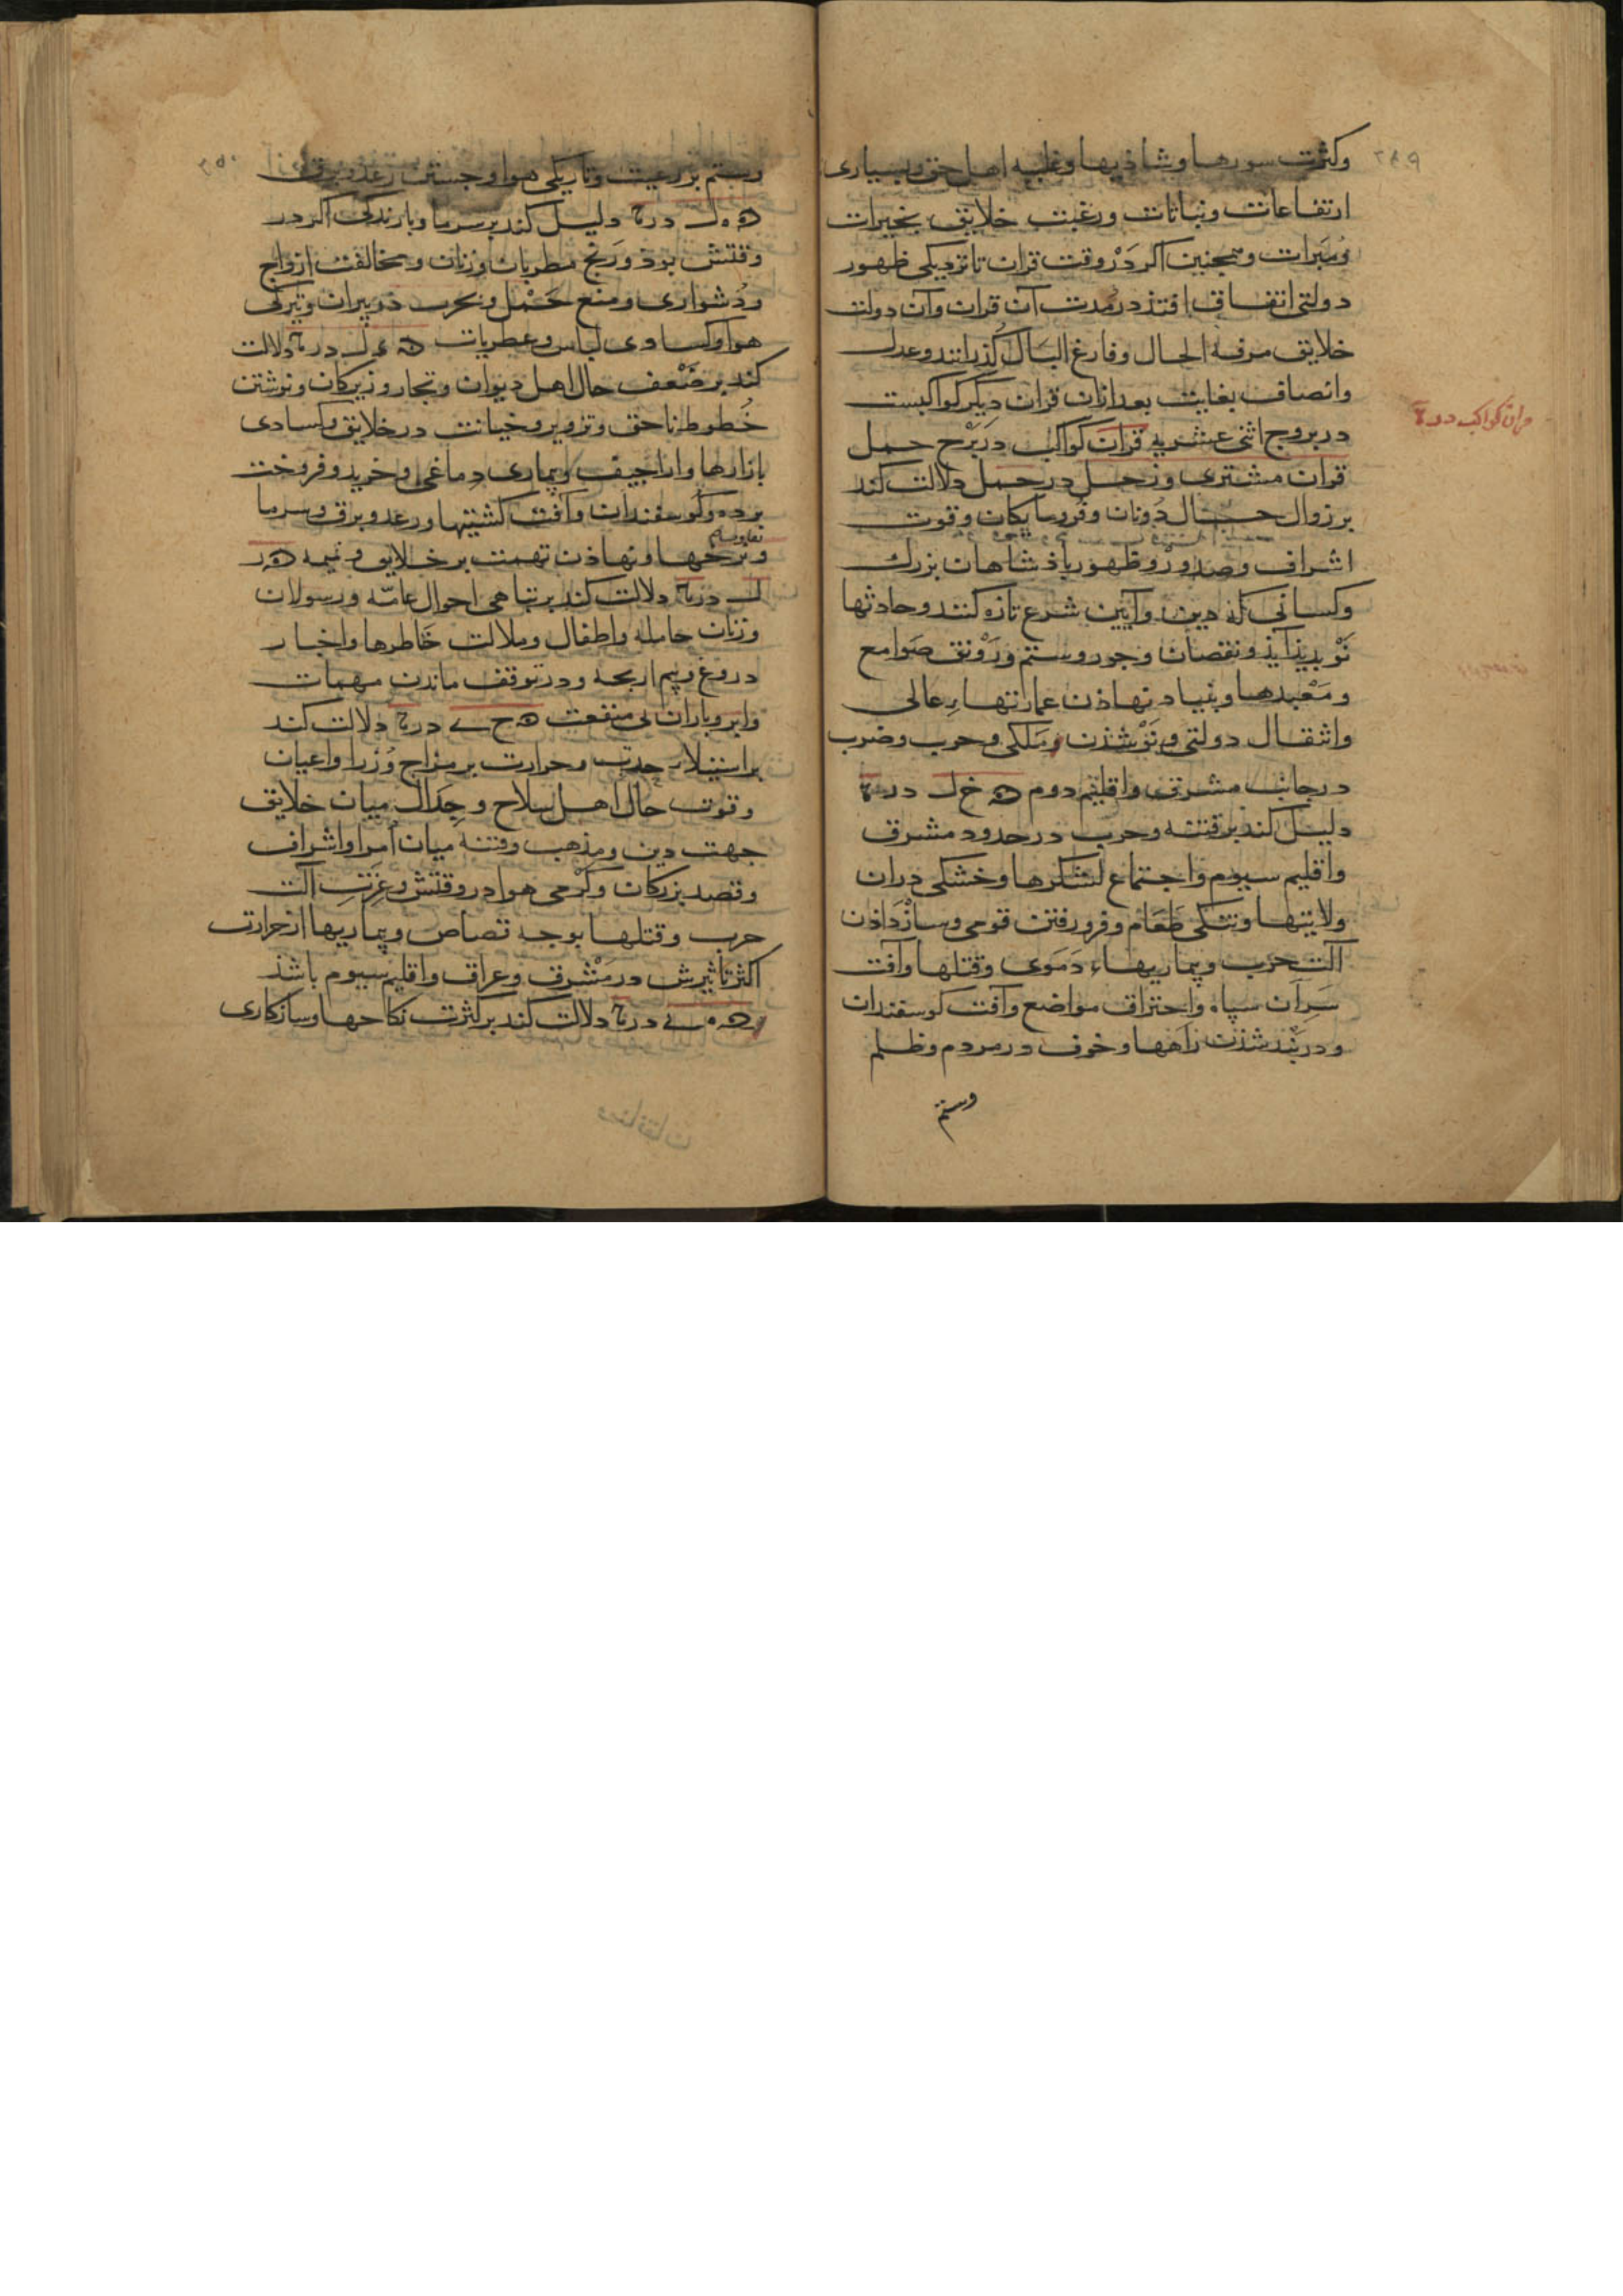 ۲۸۹
وکثرت سورها وشاذیها وغلبه اهل حق وبسیاری
ارتفاعات ونباتات ورغبت خلایق بخیرات
ومبرات وهمچنین اکر دَرْ وقت قران تا نزدیکی ظهور
دولتی اتفاق افتذ در مُدت آن قران وآن دولت
خلایق مرفه الحال وفارغ البَال کُذرانند وعدل
وانصاف بغایت بعد ازان قران دیکر کواکبست
در بروج اثنی عشریه قران کواکب در بُرْج حمل
قران کواکب در
قران مشتری وزحل در حمل دلالت کند
بر زوال حال دُونان وفُرومایکان وقوت
اشراف وصدُورْ وظهور باذشاهان بزرك
وکسانی که دین وآیین شرع تازه کنند وحادثها
نَوْ بدیذ آیذ ونقصان وجور وستم ورَوْنق صَوامع
ومَعْبدها وبنیاد نهاذن عمارتهاءِ عالی
وانتقال دولتی ونَوْ شذن مُلکی وحرب وضرب
در جانب مشرق واقلیم دوم خ ل در
دلیل کند بر فتنه وحرب در حدود مشرق
واقلیم سیوم واجتماع لشکرها وخشکی دران
ولایتها وتنکی طَعَام وفرو رفتن قومی وسازْ دَاذن
آلت حرب وبیماریهاء دَمَوی وقتلها وآفت
سَرِان سپاه واحتراق مواضع وآفت کوسفندان
ودر بَنْد شذن رَاهها وخوف در مردم وظلم
وستم
وستم بر رعیت وتاریکی هوا وجستن رعد وبرق
ه ل در دلیل کند بر سرما وبارندکی اکر در
وقتش بوذ ورَنج مطربان وزنان ومخالفت ازواج
ودُشواری ومنع حَمْل وحرب در پیران وتیرکی
هوا وکسادی لباس وعطریات ل در دلالت
کند بر ضَعْف حال اهل دیوان وتجار وزیرکان ونوشتن
خُطوط ناحق وتزویر وخیانت در خلایق وکسادی
بازارها واراجیف وبیماری دِماغی وخرید وفروخت
برده وکوسفندان وآفت کشتیها ورعد وبرق وسرما
ونرخها ونهاذن تهمت بر خلایق ونمیمه
ل در دلالت کند بر تباهی احوال عامّه ورسولان
وزنان حامله واطفال وملالت خَاطرها واخبار
دروغ وبیم اراجیف ودر توقف ماندن مهمات
وابر وباران بی منفعت ح ی در دلالت کند
بر استیلاء حدت وحرارت بر مزاج وُزرا واعیان
وقوت حال اهل سلاح وجِدَال میان خلایق
جهت دین ومذهب وفتنه میان اُمرا واشراف
وقصد بزرکان وکَرْمی هوا در وقتش وعِزّتِ آلت
حرب وقتلها بوجه قصاص وبیماریها از حرارت
اکثر تاثیرش در مَشْرق وعراق واقلیم سیوم باشذ
ه ی در دلالت کند بر کثرت نکاحها وسازکاری